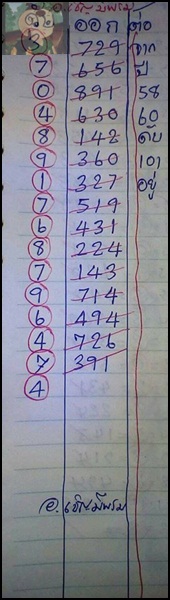 อ.เซียนมีพรม
ออก ต่อ
③ 729 จาก
⑦ 656 ปี
⓪ 891 58
④ 630 60
⑧ 142 ดับ
⑨ 360 101
① 327 อยู่
⑦ 519
⑥ 431
⑧ 224
⑦ 143
⑨ 714
⑥ 494
④ 726
⑦ 391
④